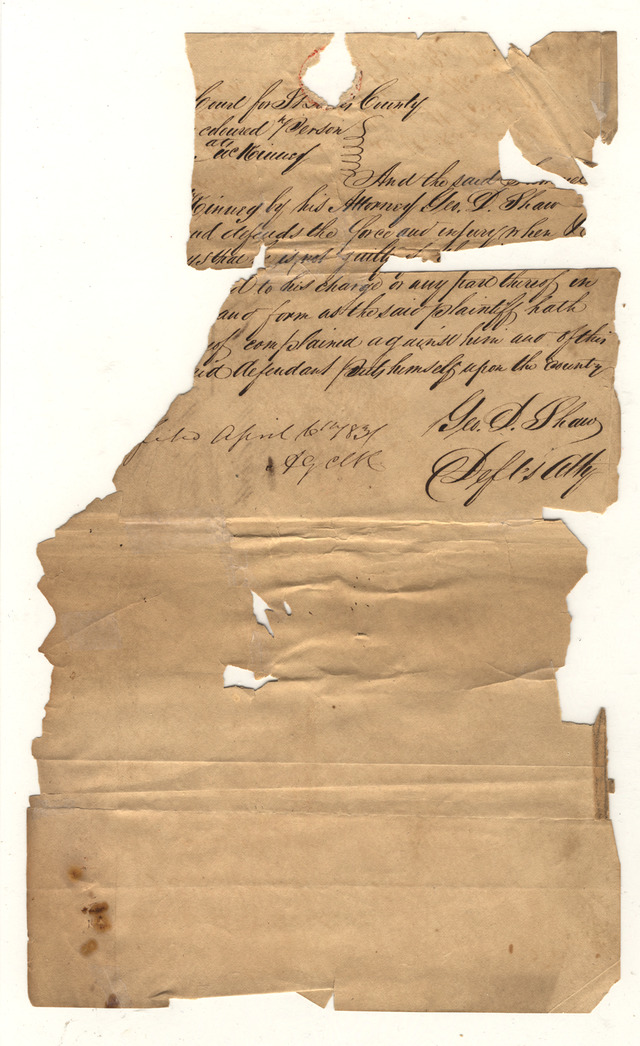 Court for St Louis County
coloured Person
vs
McKinney
And the said
Kinney by his Attorney Geo. D. Shaw
nd defends the force and injury when &
ys that he is not guilty
d to his charge or any part thereof in
and form as the said plaintiff hath
of complained against him and of this
aid defendant puts himself upon the county
Geo. D. Shaw
Defts Atty
filed April 6th 1831
clk